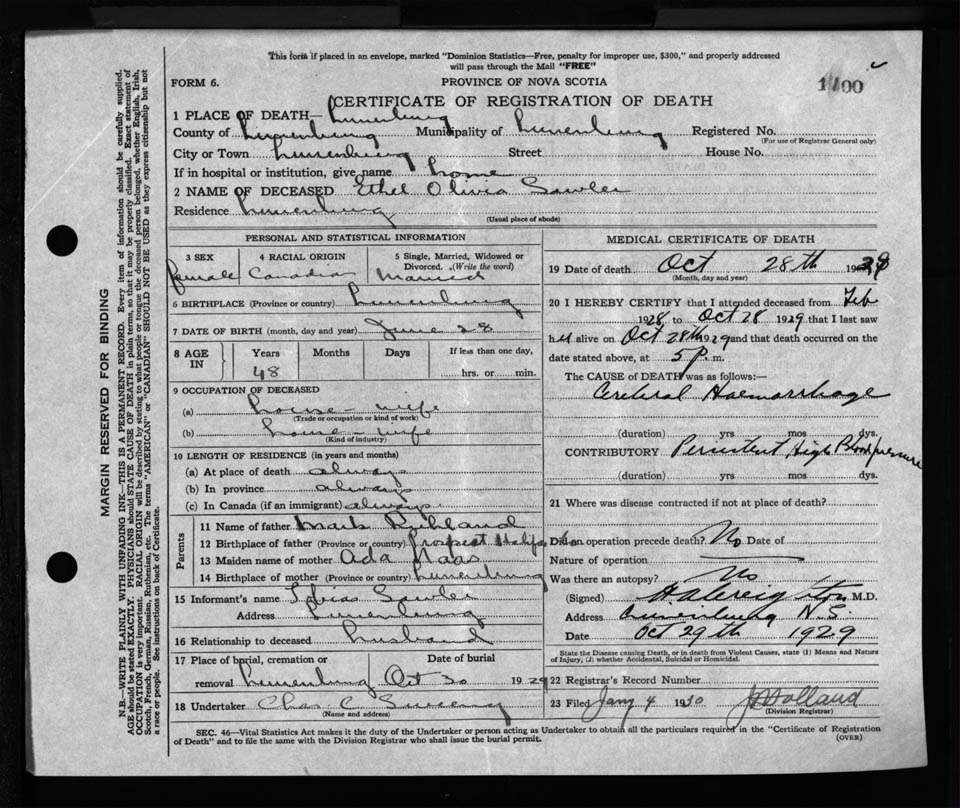 This form if placed in an envelope, marked "Dominion Statistics—Free, penalty for improper use, $300," and properly addressed
will pass through the Mail "FREE"
FORM 6. PROVINCE OF NOVA SCOTIA
CERTIFICATE OF REGISTRATION OF DEATH
1 PLACE OF DEATH— Lunenburg
County of Lunenburg Municipality of Lunenburg Registered No.
(For use of Registrar General only)
City or Town Lunenburg Street House No.
If in hospital or institution, give name home
2 NAME OF DECEASED Ethel Olivia Sawler
Residence Lunenburg
(Usual place of abode)
PERSONAL AND STATISTICAL INFORMATION
3 SEX 4 RACIAL ORIGIN 5 Single, Married, Widowed or
Divorced. (Write the word)
female Canadian Married
6 BIRTHPLACE (Province or country) Lunenburg
7 DATE OF BIRTH (month, day and year) June 28
8 AGE IN Years Months Days If less than one day,
48 hrs. or min.
9 OCCUPATION OF DECEASED
(a) house-wife
(Trade or occupation or kind of work)
(b) house-wife
(Kind of industry)
10 LENGTH OF RESIDENCE (in years and months)
(a) At place of death always
(b) In province always
(c) In Canada (if an immigrant) always
Parents
11 Name of father Mark
12 Birthplace of father (Province or country) Prospect Halifax Co
13 Maiden name of mother Ada Naas
14 Birthplace of mother (Province or country) Lunenburg
15 Informant's name Tobias Sawler
Address Lunenburg
16 Relationship to deceased husband
17 Place of burial, cremation or Date of burial
removal Lunenburg Oct 30 1929
18 Undertaker Chas C Sweeny
(Name and address)
MEDICAL CERTIFICATE OF DEATH
19 Date of death Oct 28th 1929
(Month, day and year)
20 I HEREBY CERTIFY that I attended deceased from Feb
1928 to Oct 28 1929 that I last saw
her alive on Oct 28th 1929 and that death occurred on the
date stated above, at 5 p. m.
The CAUSE of DEATH was as follows:—
Cerebral Haemorrhage
(duration) yrs mos dys.
CONTRIBUTORY Persistent High Blood pressure
(duration) yrs mos dys.
21 Where was disease contracted if not at place of death?
Did an operation precede death? No Date of
Nature of operation
Was there an autopsy? No
(Signed) M.D.
Address Lunenburg N.S.
Date Oct 29th 1929
State the Disease causing Death, or in death from Violent Causes, state (1) Means and Nature
of Injury, (2) whether Accidental, Suicidal or Homicidal.
22 Registrar's Record Number
23 Filed Jany 4 1930 Holland
(Division Registrar)
SEC. 46—Vital Statistics Act makes it the duty of the Undertaker or person acting as Undertaker to obtain all the particulars required in the "Certificate of Registration
of Death" and to file the same with the Division Registrar who shall issue the burial permit. (OVER)
MARGIN RESERVED FOR BINDING
N.B.—WRITE PLAINLY WITH UNFADING INK—THIS IS A PERMANENT RECORD. Every item of information should be carefully supplied.
AGE should be stated EXACTLY. PHYSICIANS should STATE CAUSE OF DEATH in plain terms, so that it may be properly classified. Exact statement of
OCCUPATION is very important. RACIAL ORIGIN will be described by stating to what people or tongue the deceased person belonged, whether English, Irish,
Scotch, French, German, Russian, Ruthenian, etc. The terms "AMERICAN" or "CANADIAN" SHOULD NOT BE USED as they express citizenship but not
a race or people. See instructions on back of Certificate.